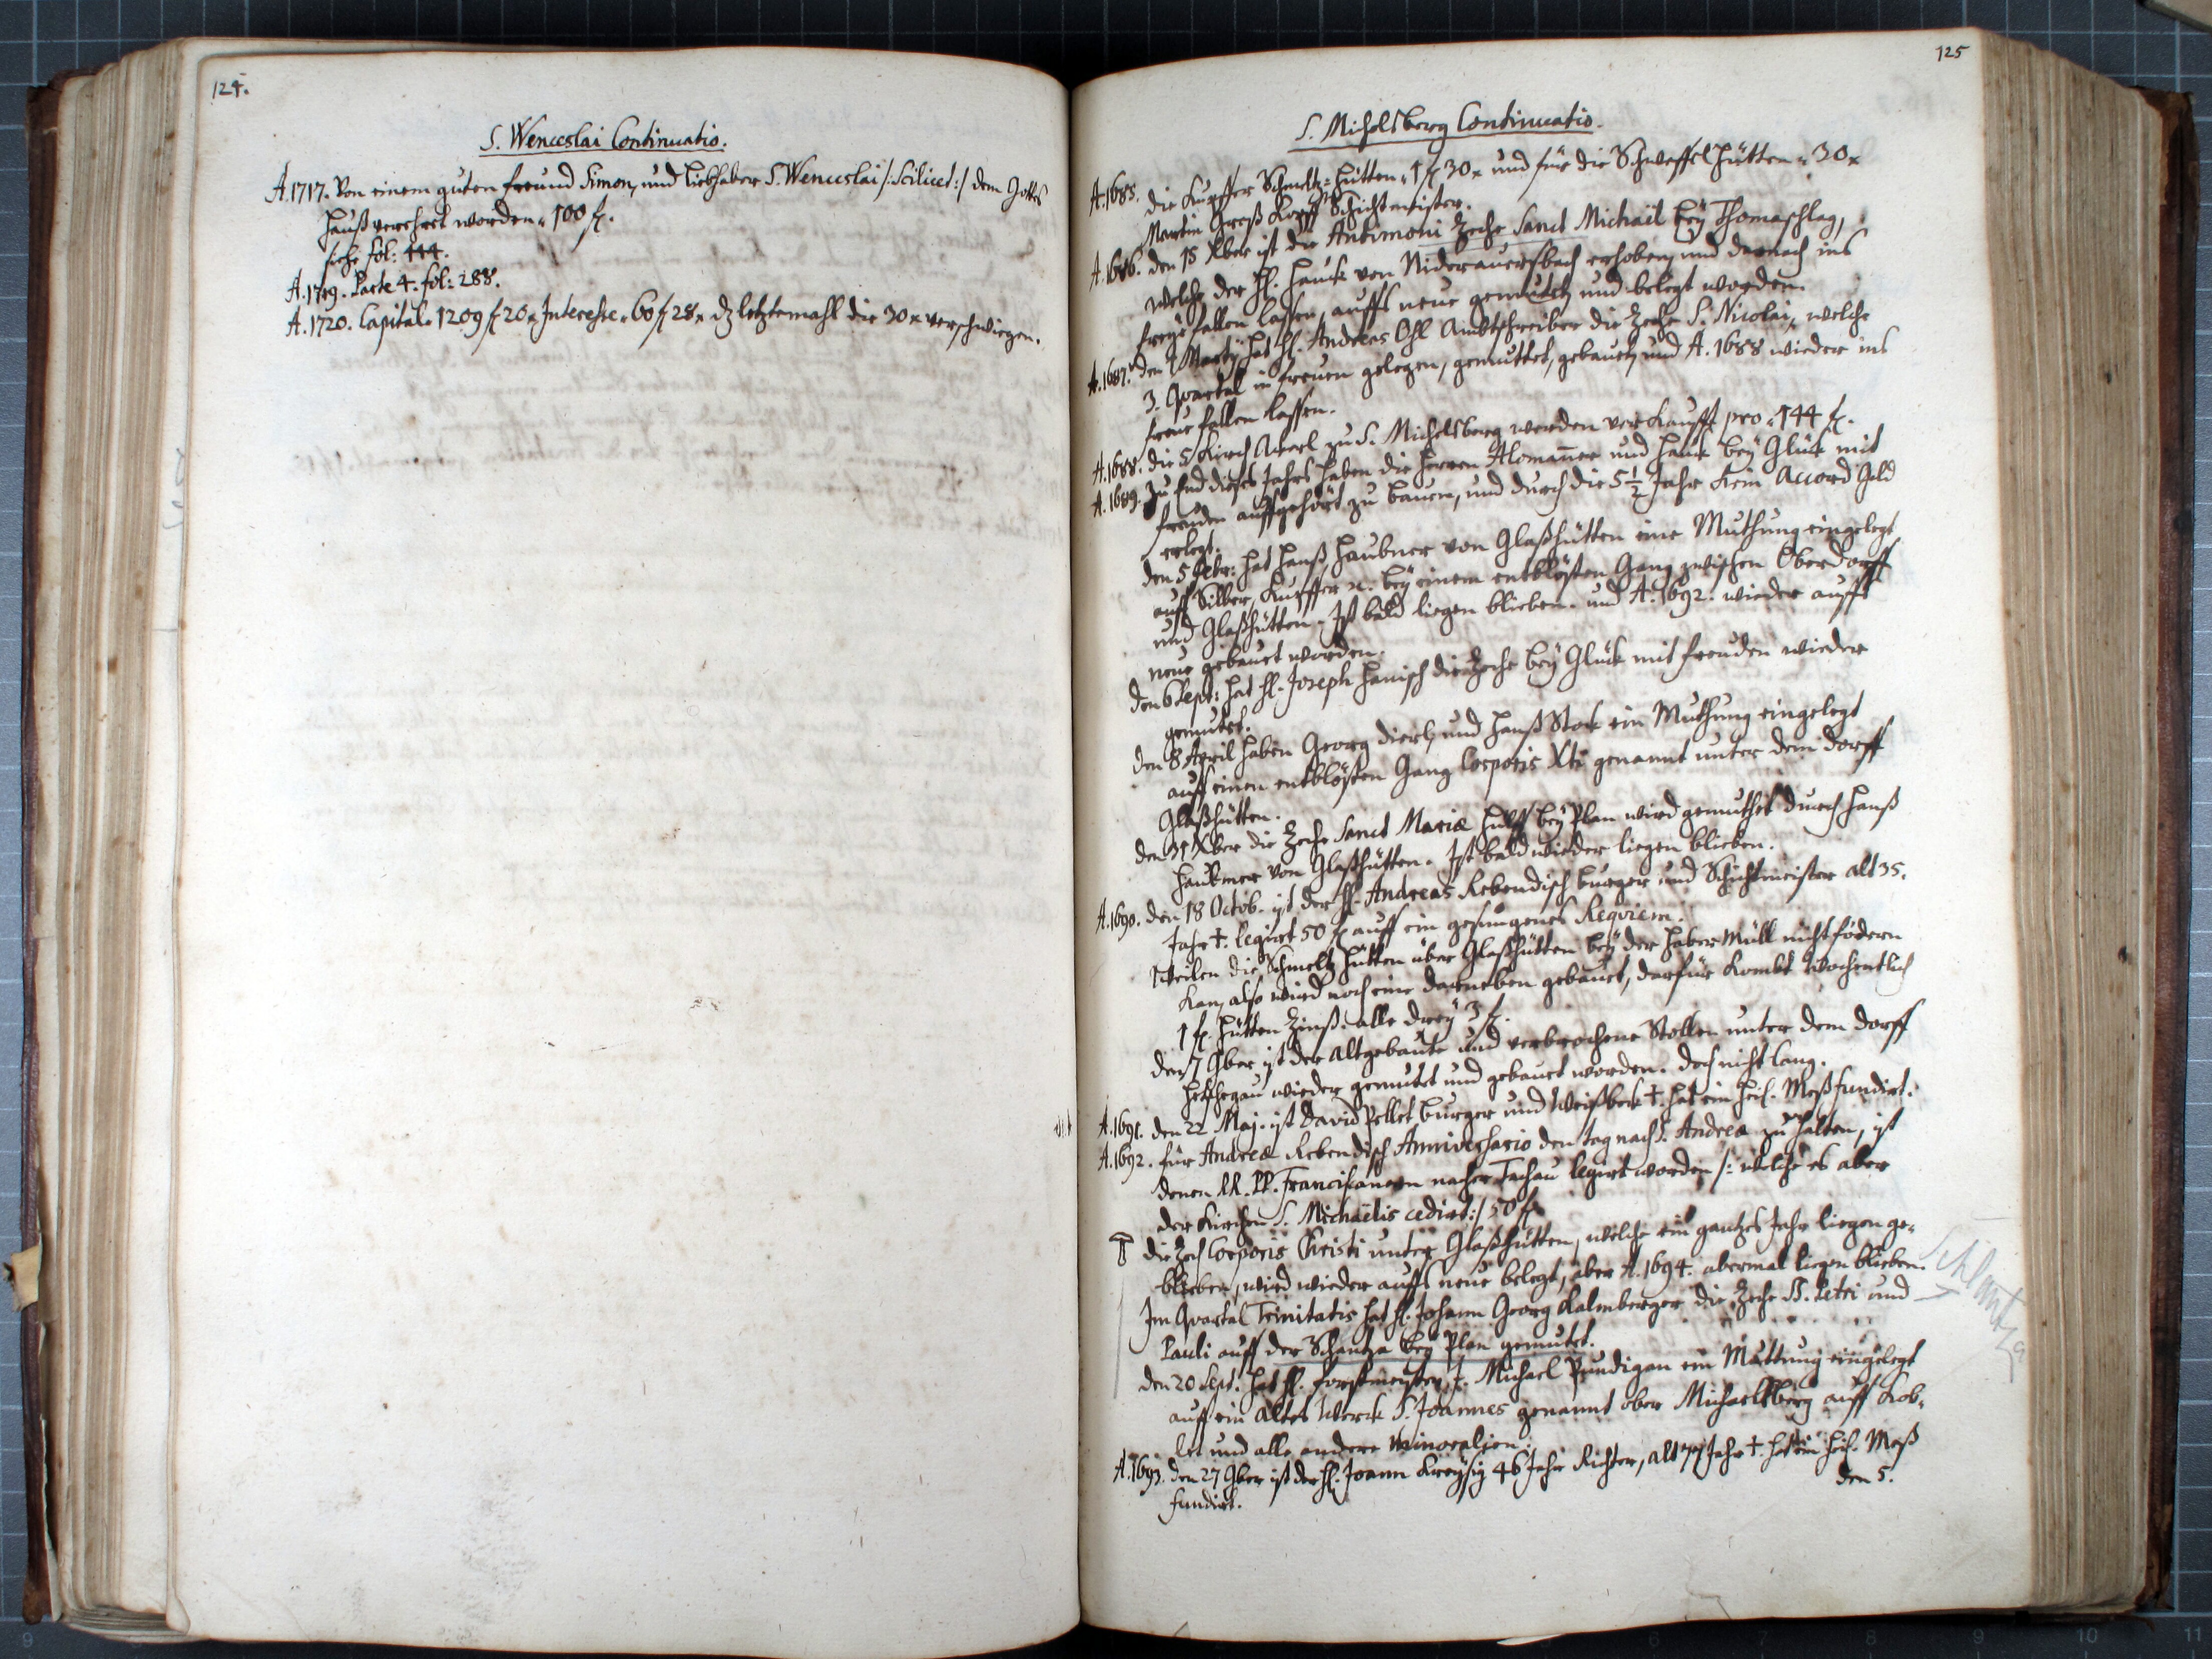 124.
S. Wenceslai Continuatio.
A. 1717. Von einem guten freund Simon, und Liebhaber S. Wenceslai /: Scilicet :/ dem Gotts
hauß verehret worden „ 100 f.
siehe fol: 144.
A. 1719. Parte 4. fol: 288.
A. 1720. Capital „ 1209 f 20 x Interesse „ 60 f 28 x dz letztemahl die 30 x verschwiegen.
125
S. Michelsberg Continuatio.
A. 1685. die Kupffer Schmeltz-Hütten „ 1 f 30 x und für die Schweffel Hütten „ 30 x
Martin Groß Schichtmeister.
A. 1686. den 15 Xber ist die Antimoni Zeche Sanct Michaël beÿ Thomaschlag,
welche der H. Hauck von Niderauersbach erhoben, und darnach ins
freÿe fallen lassen, auffs neue gemutet, und belegt worden.
A. 1687. den Martÿ hat H. Andreas Ohl Ambtschreiber die Zeche S. Nicolai, welche
3. Quartal in freuen gelegen, gemuttet, gebauet, und A. 1688 wieder ins
freue fallen lassen.
A. 1688. die 5 Kirch Äcerl zu S. Michelsberg werden verkaufft pro „ 144 f.
A. 1689. Zu End dieses Jahrs haben die Herren Altmanner und Hauck beÿ Glück mit
freuden auffgehört zu bauen, und durch die 5 ½ Jahr kein Accord Geld
erlegt.
den 5 Febr: hat Hanß Haubner von Glaßhütten eine Muthung eingelegt
auff Silber, Kupffer u. beÿ einem entblösten Gang zwischen Oberdorff
und Glaßhütten. Ist bald liegen blieben. und A. 1692. wieder auffs
neue gebauet worden.
den 6 Sept: hat H. Joseph Hanisch die Zeche beÿ Glück mit freuden wieder
gemutet.
den 8 April haben Georg Dierl, und Hanß Stock ein Muthung eingelegt
auff einen entblösten Gang Corporis Xti genannt unter dem Dorff
Glaßhütten.
den 31 Xber die Zeche Sanct Mariæ Hülff beÿ Plan wird gemuthet durch Hanß
Haubner von Glaßhütten. Ist bald wieder liegen blieben.
A. 1690. den 18 Octob. ist der H. Andreas Rebendisch burger und Schichtmeister alt 35.
Jahr †. legirt 50 f auff ein gesungenes Reqviem.
Weilen die Schmeltz Hütten über Glaßhütten beÿ der Haber Müll nicht födern
kan, also wird noch eine darneben gebauet, darfür kombt wochentlich
1 f. Hütten Zinß. alle dreÿ 3 f.
den 7 9ber ist der altgebaute und verbrochene Stollen unter dem dorff
Hetschegau wieder gemutet und gebauet worden. doch nicht lang.
A. 1691. den 22 Maj. ist David Pellet burger und Weißbeck †. hat ein heil. Meß fundirt.
A. 1692. für Andreæ Rebendisch Anniversario den tag nach S. Andreæ zu halten, ist
denen RR. PP. Franciscanern nacher Tachau legirt worden /: welche es aber
der Kirchen S. Michaëlis cedirt :/ 50 f.
die Zech Corporis Christi unter Glaßhütten, welche ein gantzes Jahr liegen ge-
blieben, wird wieder auffs neue belegt, aber A. 1694. abermal liegen blieben.
Im Quartal Trinitatis hat H. Johann Georg Kalmberger die Zeche SS. Petri und
Pauli auff der Schantza beÿ Plan gemutet.
den 20 Sept. hat H. Forstmeister J. Michael Pundigan ein Muttung eingelegt
auff ein altes Werck S. Joannes genannt ober Michaelsberg auff Kob-
let und alle andere Mineralien.
A. 1693. den 27 9ber ist der H. Joann Kreÿsig 46 Jahr Richter, alt 77 Jahr †. hat ein heil. Meß
fundirt.
den 5.